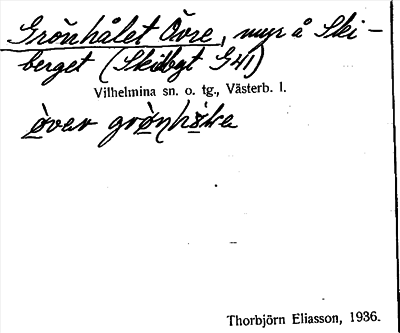 Grönhålet Övre, myr å Ski-
berget (Skidbgt G41)
Vilhelmina sn. o. tg., Västerb. l.
Thorbjörn Eliasson, 1936.